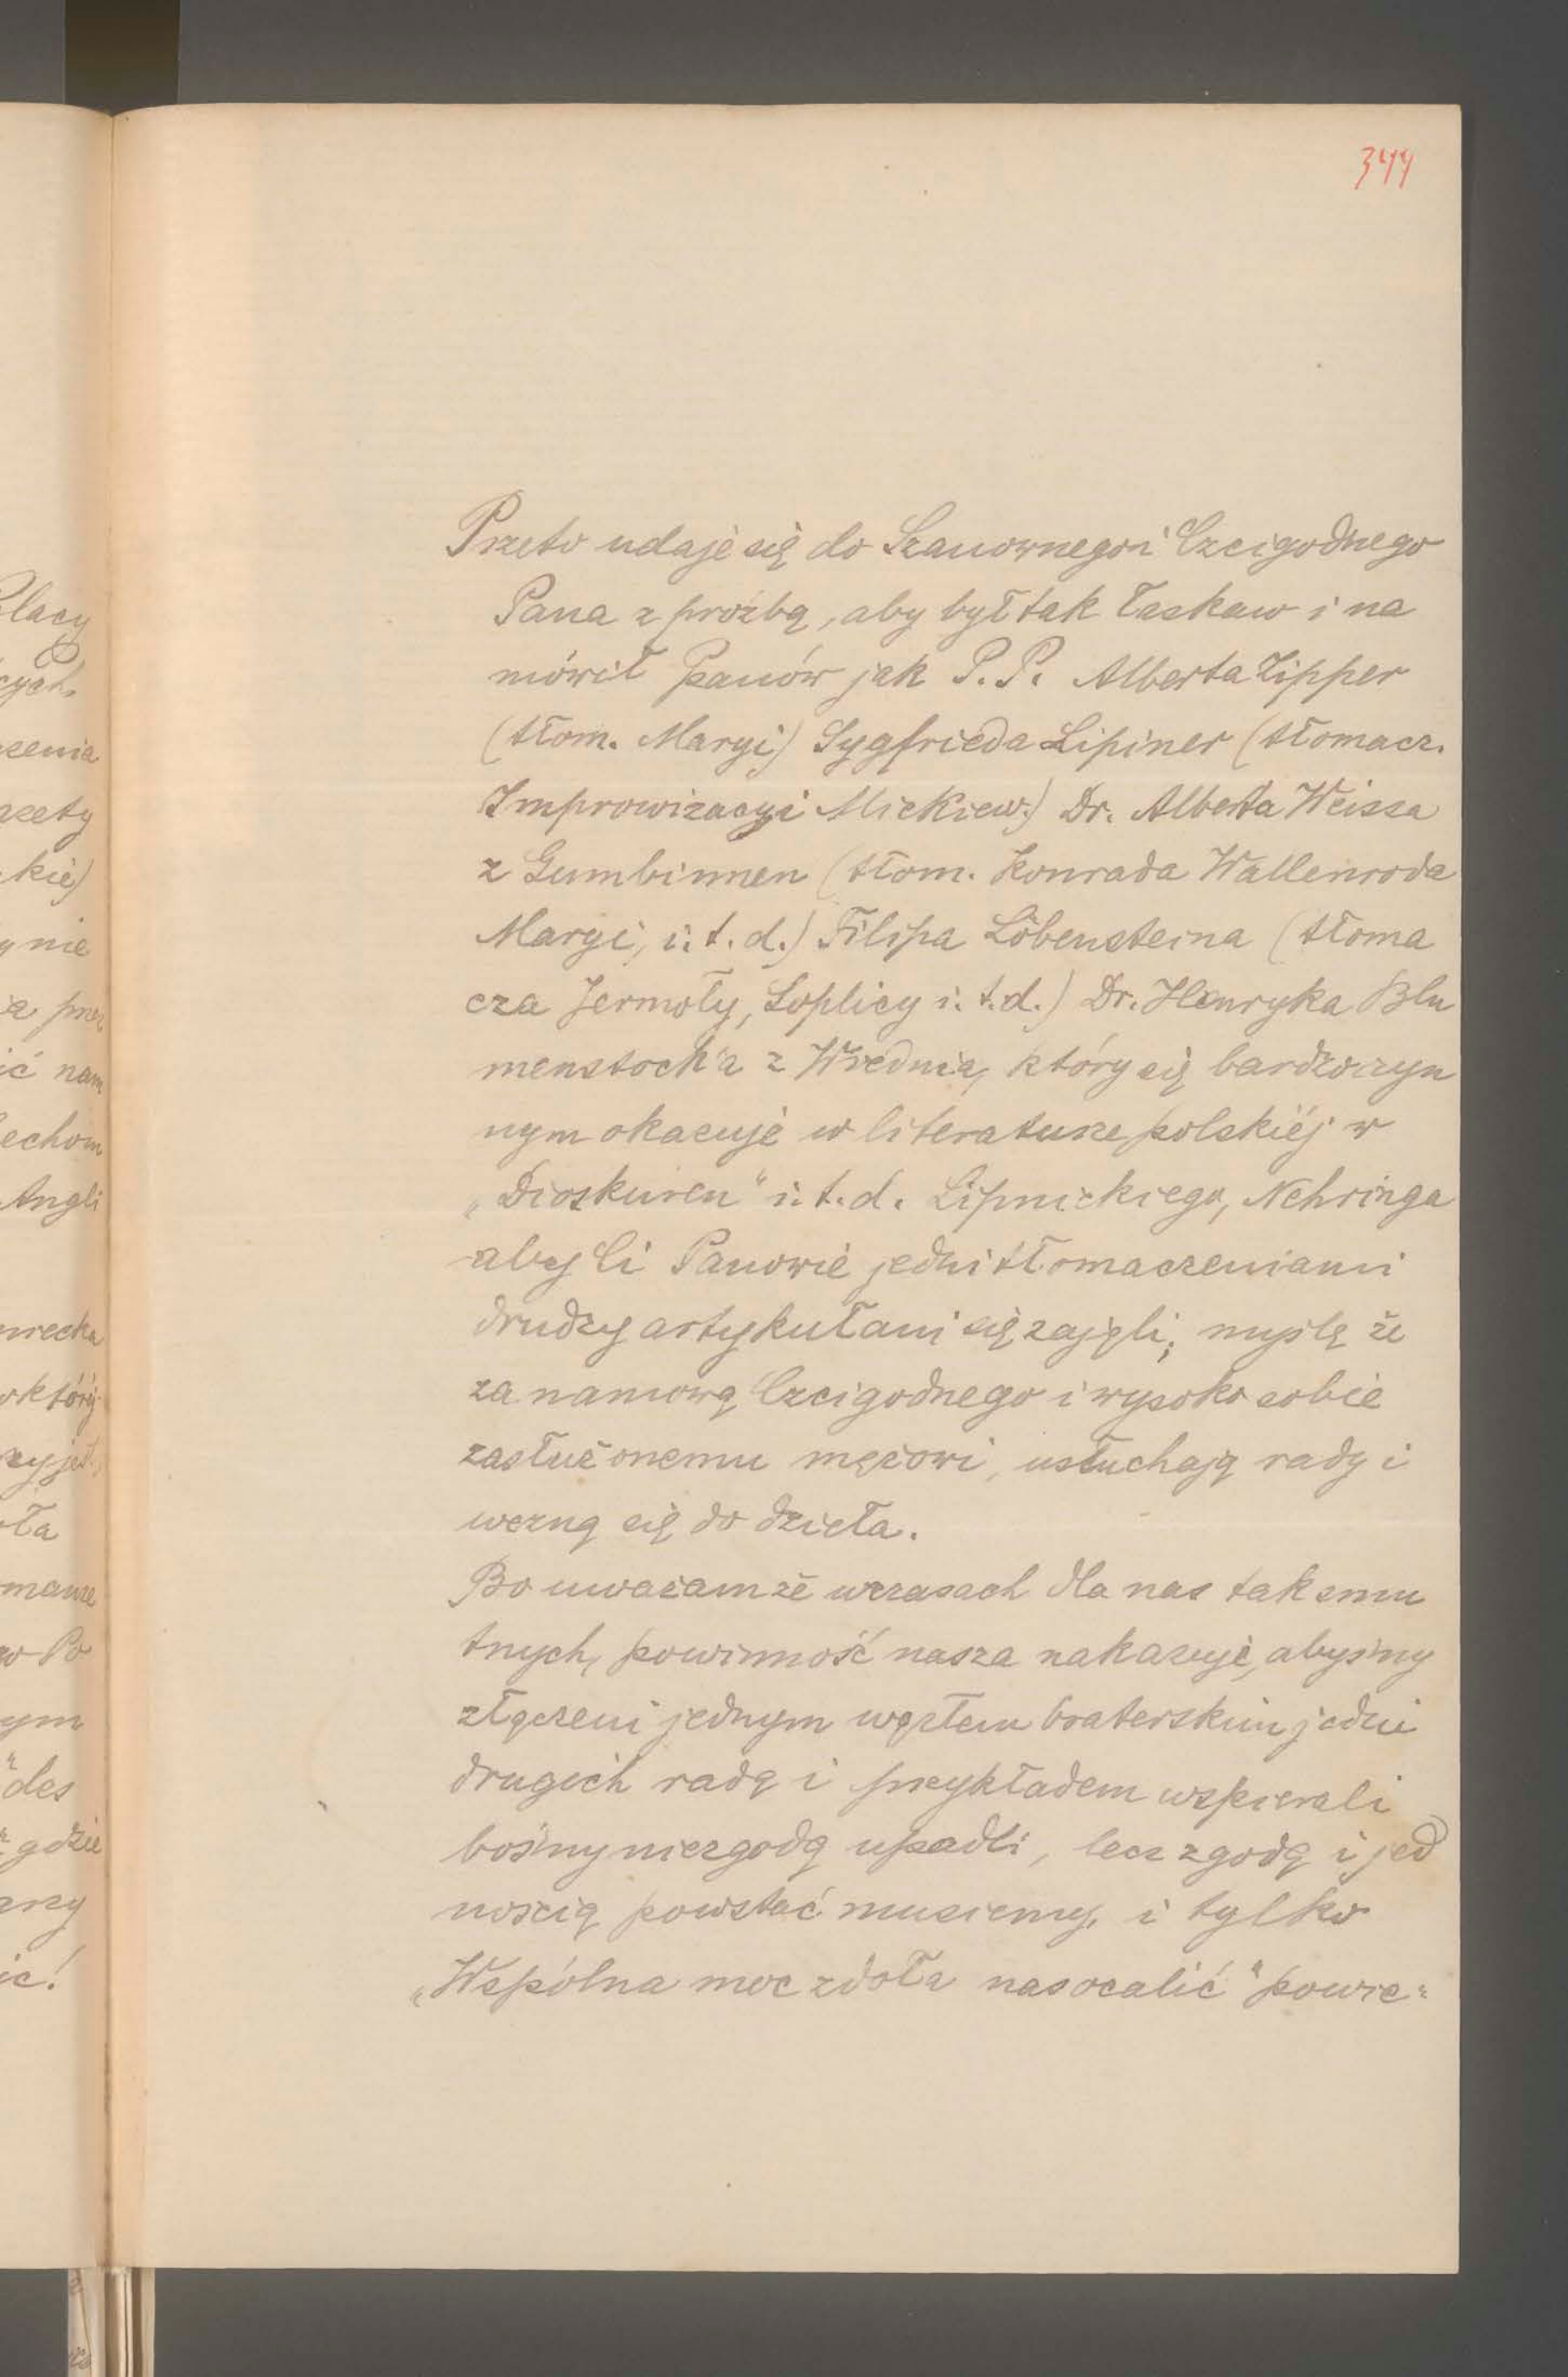 344
Przeto udaje się do Szanownego i Czcigodnego
Pana z prozbą, aby był tak łaskaw i na
mówił Panów jak P.P. Alberta Zipper
(tłom. Maryi) Sygfrieda Lipiner (tłomacz.
Improwizacyi Mickiew.) Dr. Alberta Weissa
z Gumbinnen (tłom. Konrada Wallenroda
Maryi, i. t. d.) Filipa Löbensteina (tłoma
cza Jermoły, Soplicy i. t. d.) Dr. Henryka Blu
menstock'a z Wiednia, który się bardzo czyn
nym okazuje w literaturze polskiéj w
„Dioskuren" i. t. d. Lipnickiego, Nehringa
aby Ci Panowie jedni tłomaczeniami
drudzy artykułami się zajęli; myślę że
za namową Czcigodnego i wysoko sobie
zasłużonemu mężowi, usłuchają rady i
wezną się do dzieła.
Bo uważam że w czasach dla nas tak smu
tnych, powinność nasza nakazuje, abyśmy
złączeni jednym węzłem braterskim jedni
drugich radą i przykładem wspierali
bośmy niezgodą upadli, lecz zgodą i jed
nością powstać musiemy, i tylko
„Wspólna moc zdoła nas ocalić" powie=